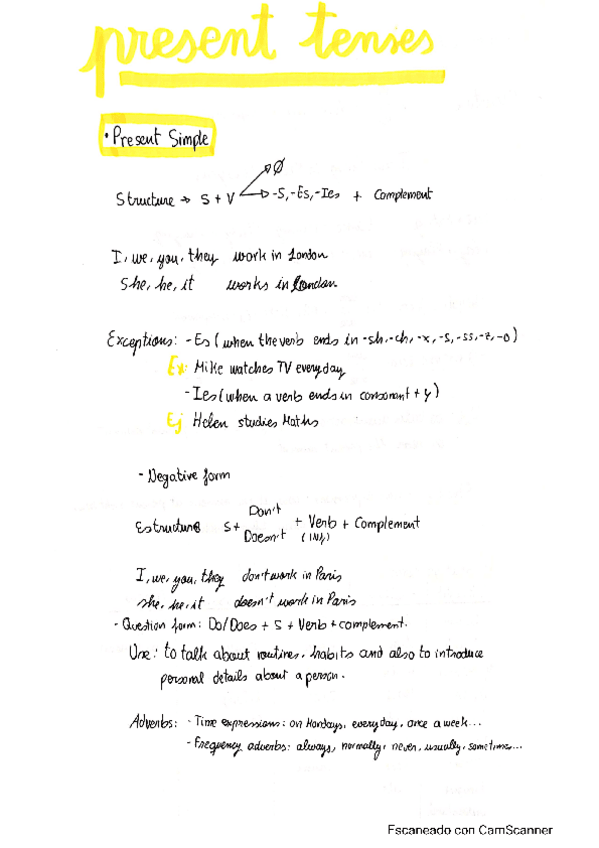 present tenses
• Present Simple
Structure → S + V → Ø
→ -S, -Es, -Ies + Complement
I, we, you, they work in London
She, he, it works in London
Exceptions: -Es (when the verb ends in -sh, -ch, -x, -s, -ss, -z, -o)
Ex: Mike watches TV everyday
- Ies (when a verb ends in consonant + y)
Ej Helen studies Maths
- Negative form
Estructure S + Don't / Doesn't + Verb (INF) + Complement
I, we, you, they don't work in Paris
she, he, it doesn't work in Paris
- Question form: Do/Does + S + Verb + complement.
Use: to talk about routines, habits and also to introduce
personal details about a person.
Adverbs: - Time expressions: on Mondays, everyday, once a week...
- Frequency adverbs: always, normally, never, usually, sometimes...
Escaneado con CamScanner